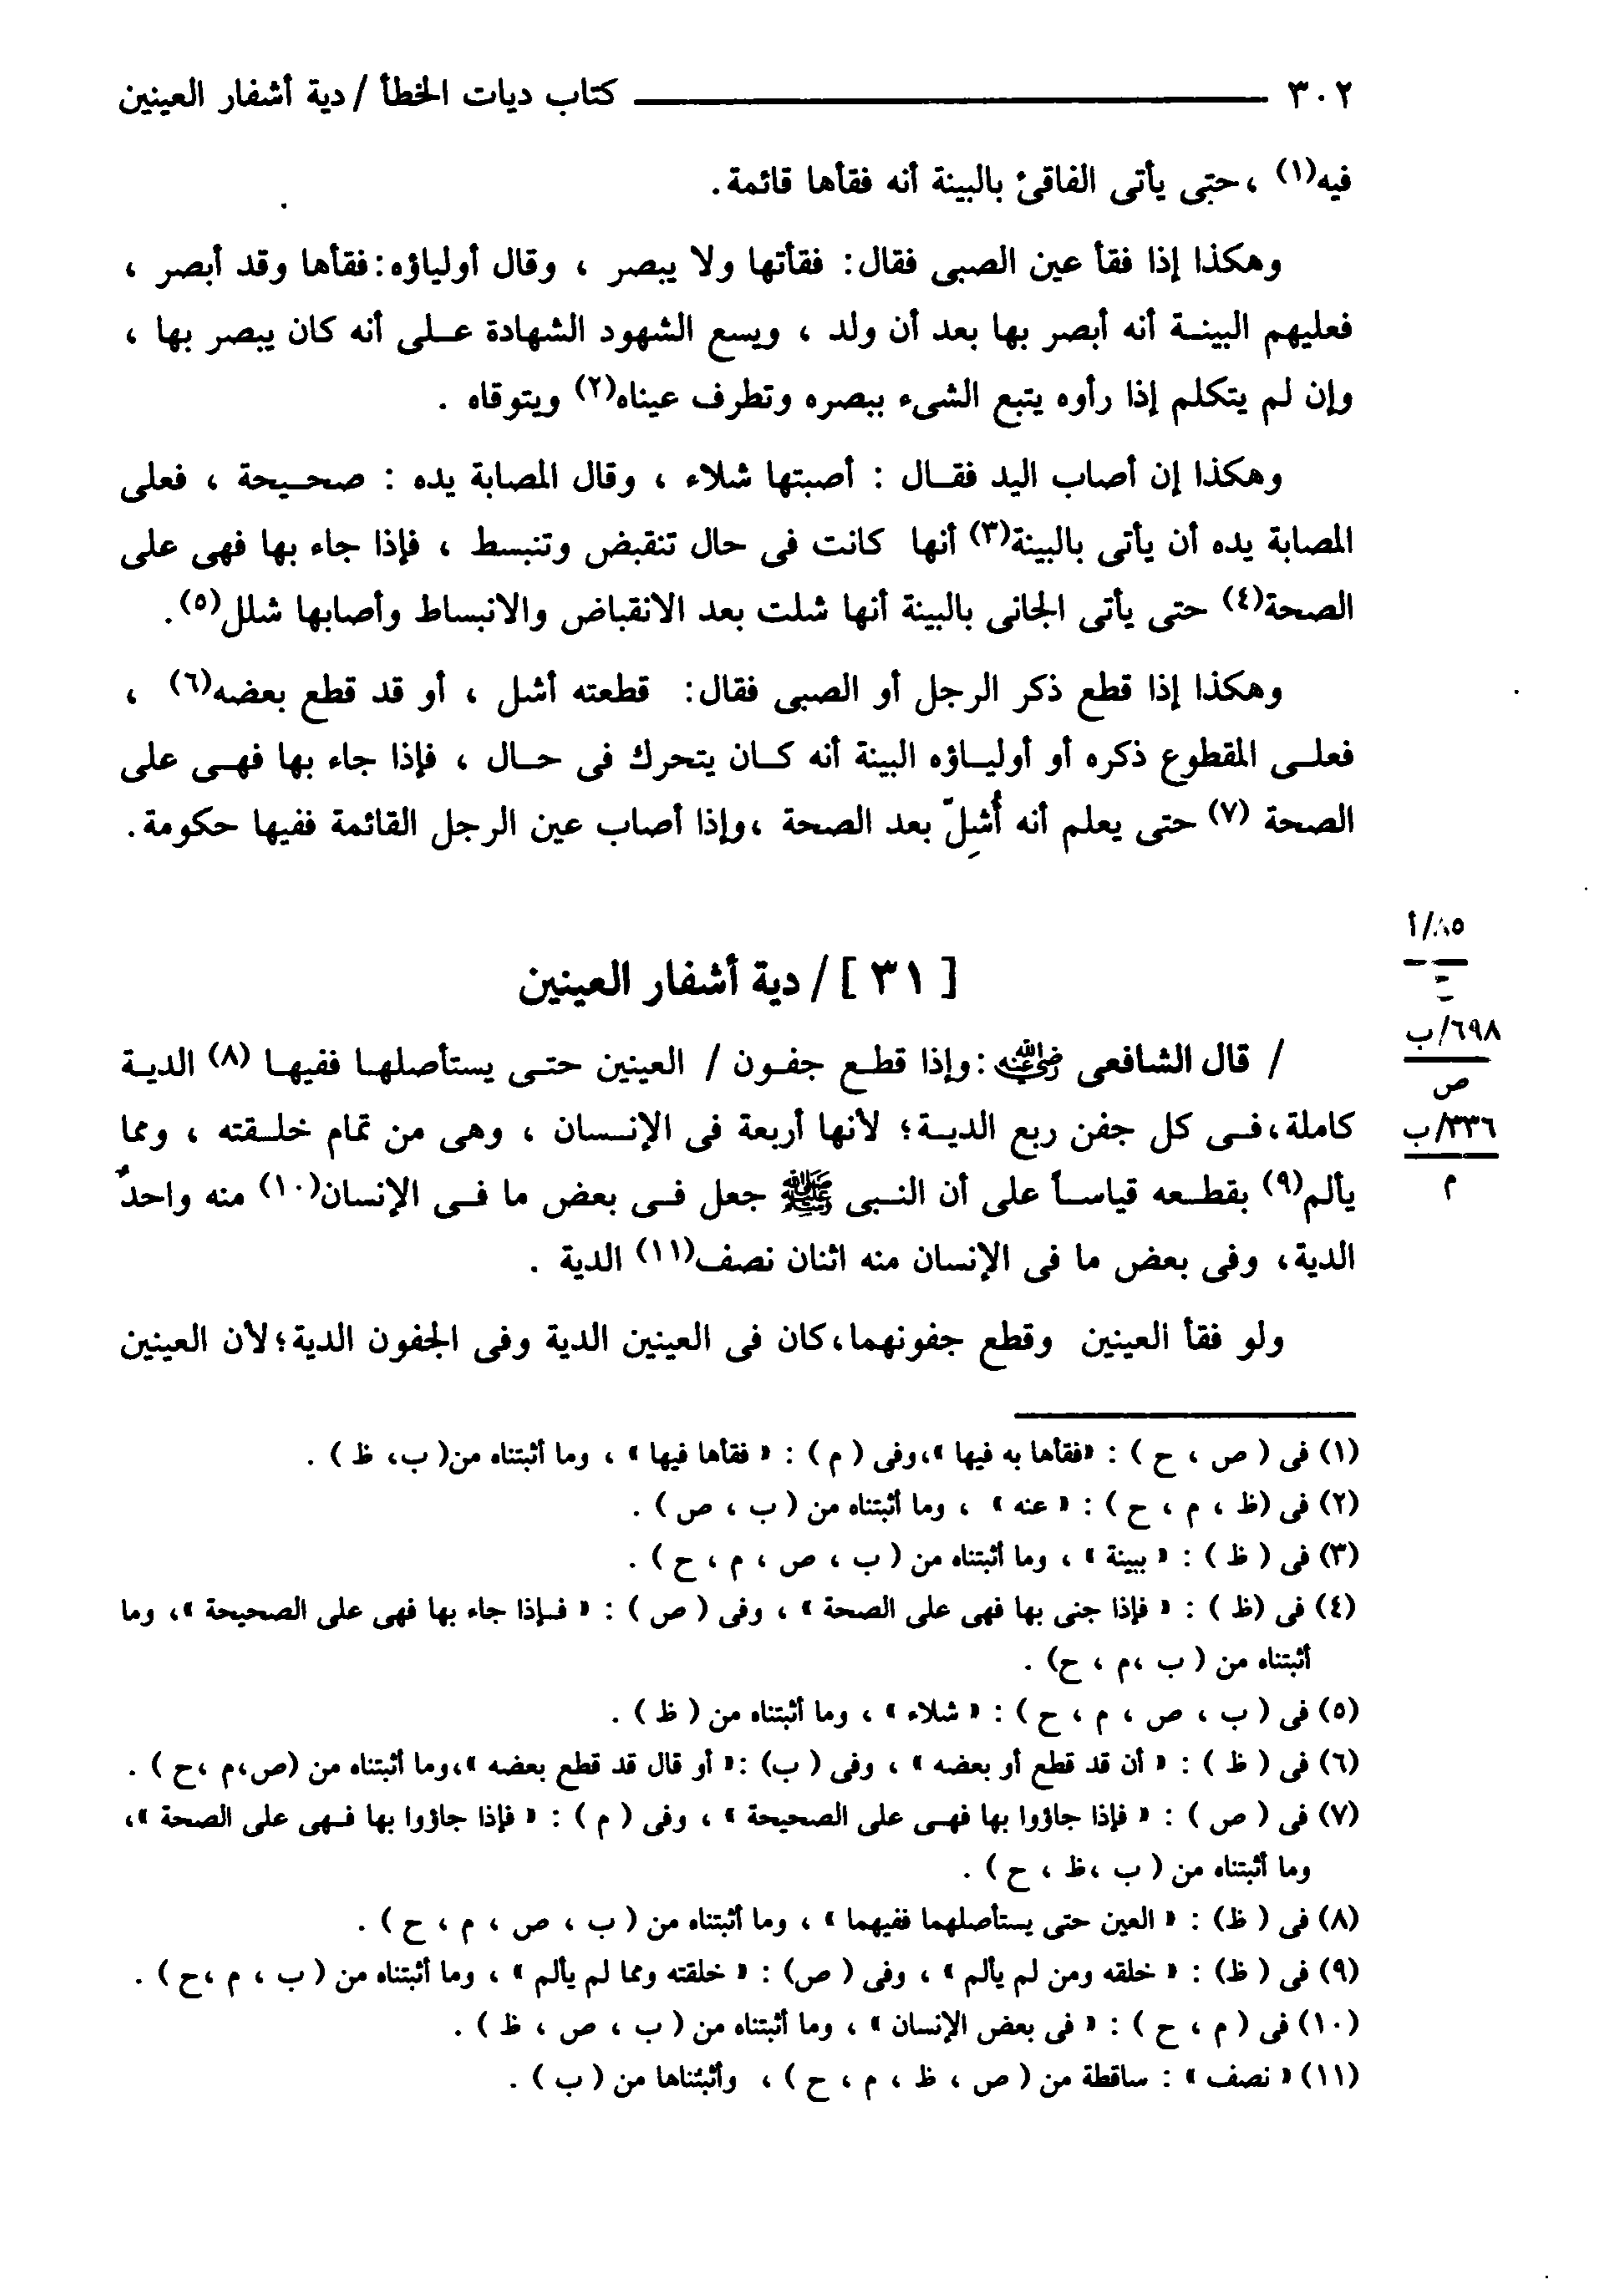 ٣٠٢ كتاب ديات الخطأ / دية أشفار العينين
فيه(١) ، حتى يأتى الفاقئ بالبينة أنه فقأها قائمة.
وهكذا إذا فقأ عين الصبى فقال: فقأتها ولا يبصر ، وقال أولياؤه: فقأها وقد أبصر ،
فعليهم البينـة أنه أبصر بها بعد أن ولد ، ويسع الشهود الشهادة عـلى أنه كان يبصر بها ،
وإن لم يتكلم إذا رأوه يتبع الشىء ببصره وتطرف عيناه(٢) ويتوقاه .
وهكذا إن أصاب اليد فقـال : أصبتها شلاء ، وقال المصابة يده : صحـيحة ، فعلى
المصابة يده أن يأتى بالبينة(٣) أنها كانت فى حال تنقبض وتنبسط ، فإذا جاء بها فهى على
الصحة(٤) حتى يأتى الجانى بالبينة أنها شلت بعد الانقباض والانبساط وأصابها شلل(٥) .
وهكذا إذا قطع ذكر الرجل أو الصبى فقال: قطعته أشل ، أو قد قطع بعضه(٦) ،
فعلـى المقطوع ذكره أو أوليـاؤه البينة أنه كـان يتحرك فى حـال ، فإذا جاء بها فهـى على
الصحة (٧) حتى يعلم أنه أُشِلّ بعد الصحة ،وإذا أصاب عين الرجل القائمة ففيها حكومة.
٨٥/أ
[ ٣١ ] / دية أشفار العينين
٦٩٨/ب
ص
/ قال الشافعى رضي الله عنه :وإذا قطـع جفـون / العينين حتـى يستأصلهـا ففيهـا (٨) الديـة
كاملة،فـى كل جفن ربع الديـة؛ لأنها أربعة فى الإنـسان ، وهى من تمام خلـقته ، ومما
٣٣٦/ب
م
يألم(٩) بقطـعه قياسـاً على أن النـبى ﷺ جعل فـى بعض ما فـى الإنسان(١٠) منه واحدٌ
الدية، وفى بعض ما فى الإنسان منه اثنان نصف(١١) الدية .
ولو فقأ العينين وقطع جفونهما،كان فى العينين الدية وفى الجفون الدية؛لأن العينين
(١) فى ( ص ، ح ) : «فقأها به فيها »،وفى ( م ) : « فقأها فيها » ، وما أثبتناه من( ب، ظ ) .
(٢) فى (ظ ، م ، ح ) : « عنه » ، وما أثبتناه من ( ب ، ص ) .
(٣) فى ( ظ ) : « ببينة » ، وما أثبتناه من ( ب ، ص ، م ، ح ) .
(٤) فى (ظ ) : « فإذا جنى بها فهى على الصحة » ، وفى ( ص ) : « فـإذا جاء بها فهى على الصحيحة »، وما
أثبتناه من ( ب ،م ، ح) .
(٥) فى ( ب ، ص ، م ، ح ) : « شلاء » ، وما أثبتناه من ( ظ ) .
(٦) فى ( ظ ) : « أن قد قطع أو بعضه » ، وفى ( ب) :« أو قال قد قطع بعضه »،وما أثبتناه من (ص،م ،ح ) .
(٧) فى ( ص ) : « فإذا جاؤوا بها فهـى على الصحيحة » ، وفى ( م ) : « فإذا جاؤوا بها فـهى على الصحة »،
وما أثبتناه من ( ب ،ظ ، ح ) .
(٨) فى ( ظ) : « العين حتى يستأصلهما ففيهما » ، وما أثبتناه من ( ب ، ص ، م ، ح ) .
(٩) فى ( ظ) : « خلقه ومن لم يألم » ، وفى ( ص) : « خلقته ومما لم يألم » ، وما أثبتناه من ( ب ، م ،ح ) .
(١٠) فى ( م ، ح ) : « فى بعض الإنسان » ، وما أثبتناه من ( ب ، ص ، ظ ) .
(١١) « نصف » : ساقطة من ( ص ، ظ ، م ، ح ) ، وأثبتناها من ( ب ) .